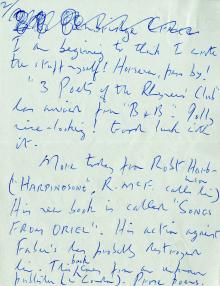 2/
I am beginning to think I wrote
the stuff myself! However, press by!
"3 Poets of the Rhymers' Club"
has arrived from "B & B". Jolly
nice-looking! Good luck with
it.
More today from Robt Harb-
("HARPINGSONG", R. McF. calls him)
His new book is called "SONGS
FROM ORIEL". His action against
Faber's has probably destroyed
him. This book comes from an unknown
publisher (in London). Prose poems.